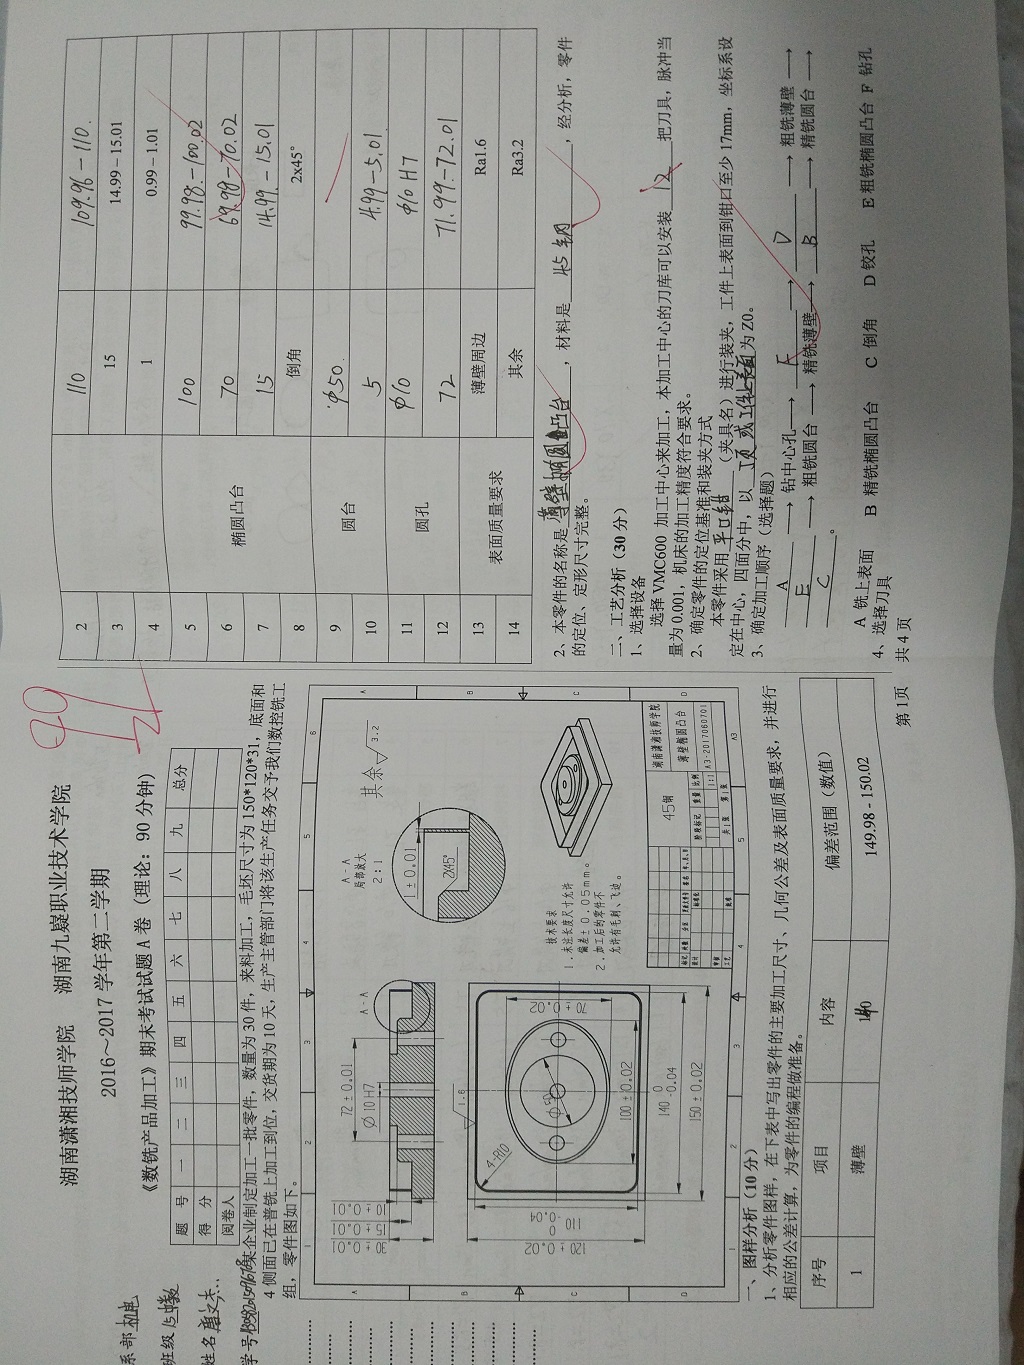 湖南潇湘技师学院 湖南九嶷职业技术学院
2016～2017 学年第二学期
《数铣产品加工》期末考试试题 A 卷（理论：90 分钟）
系部 机电
班级
姓名
学号
题 号 一 二 三 四 五 六 七 八 九 总分
得 分
阅卷人
某企业制定加工一批零件，数量为 30 件，来料加工，毛坯尺寸为 150*120*31，底面和
4 侧面已在普铣上加工到位，交货期为 10 天，生产主管部门将该生产任务交予我们数控铣工
组，零件图如下。
72±0.01
Ø10H7
A-A
30±0.01
15±0.01
10±0.01
A-A
局部放大
2:1
1±0.01
2X45°
其余 3.2
1.6
4-R10
Ø50
70±0.02
100±0.02
140 0 -0.04
150±0.02
110 0 -0.04
120±0.02
技术要求
1.未注长度尺寸允许
偏差±0.05mm。
2.加工后的零件不
允许有毛刺、飞边。
45钢
湖南潇湘技师学院
薄壁椭圆凸台
A3-2017060701
1:1
A3
一、图样分析（10 分）
1、分析零件图样，在下表中写出零件的主要加工尺寸、几何公差及表面质量要求，并进行
相应的公差计算，为零件的编程做准备。
序号 项目 内容 偏差范围（数值）
1 薄壁 149.98 - 150.02
第 1页
2 110 109.96-110
3 15 14.99－15.01
4 1 0.99－1.01
5 椭圆凸台 100 99.98-100.02
6 70 69.98-70.02
7 15 14.99-15.01
8 倒角 2x45°
9 圆台 φ50
10 5 4.99-5.01
11 圆孔 φ10 φ10 H7
12 72 71.99-72.01
13 表面质量要求 薄壁周边 Ra1.6
14 其余 Ra3.2
2、本零件的名称是 薄壁椭圆凸台 ，材料是 45钢 ，经分析，零件
的定位、定形尺寸完整。
二、工艺分析（30 分）
1、选择设备
选择 VMC600 加工中心来加工，本加工中心的刀库可以安装 12 把刀具，脉冲当
量为 0.001，机床的加工精度符合要求。
2、确定零件的定位基准和装夹方式
本零件采用 平口钳 （夹具名）进行装夹，工件上表面到钳口至少 17mm，坐标系设
定在中心，四面分中，以 为 Z0。
3、确定加工顺序（选择题）
A → 钻中心孔 → F → D → 粗铣薄壁 →
E → 粗铣圆台 → 精铣薄壁 → B → 精铣圆台 →
C 。
A 铣上表面 B 精铣椭圆凸台 C 倒角 D 铰孔 E 粗铣椭圆凸台 F 钻孔
4、选择刀具
共 4 页